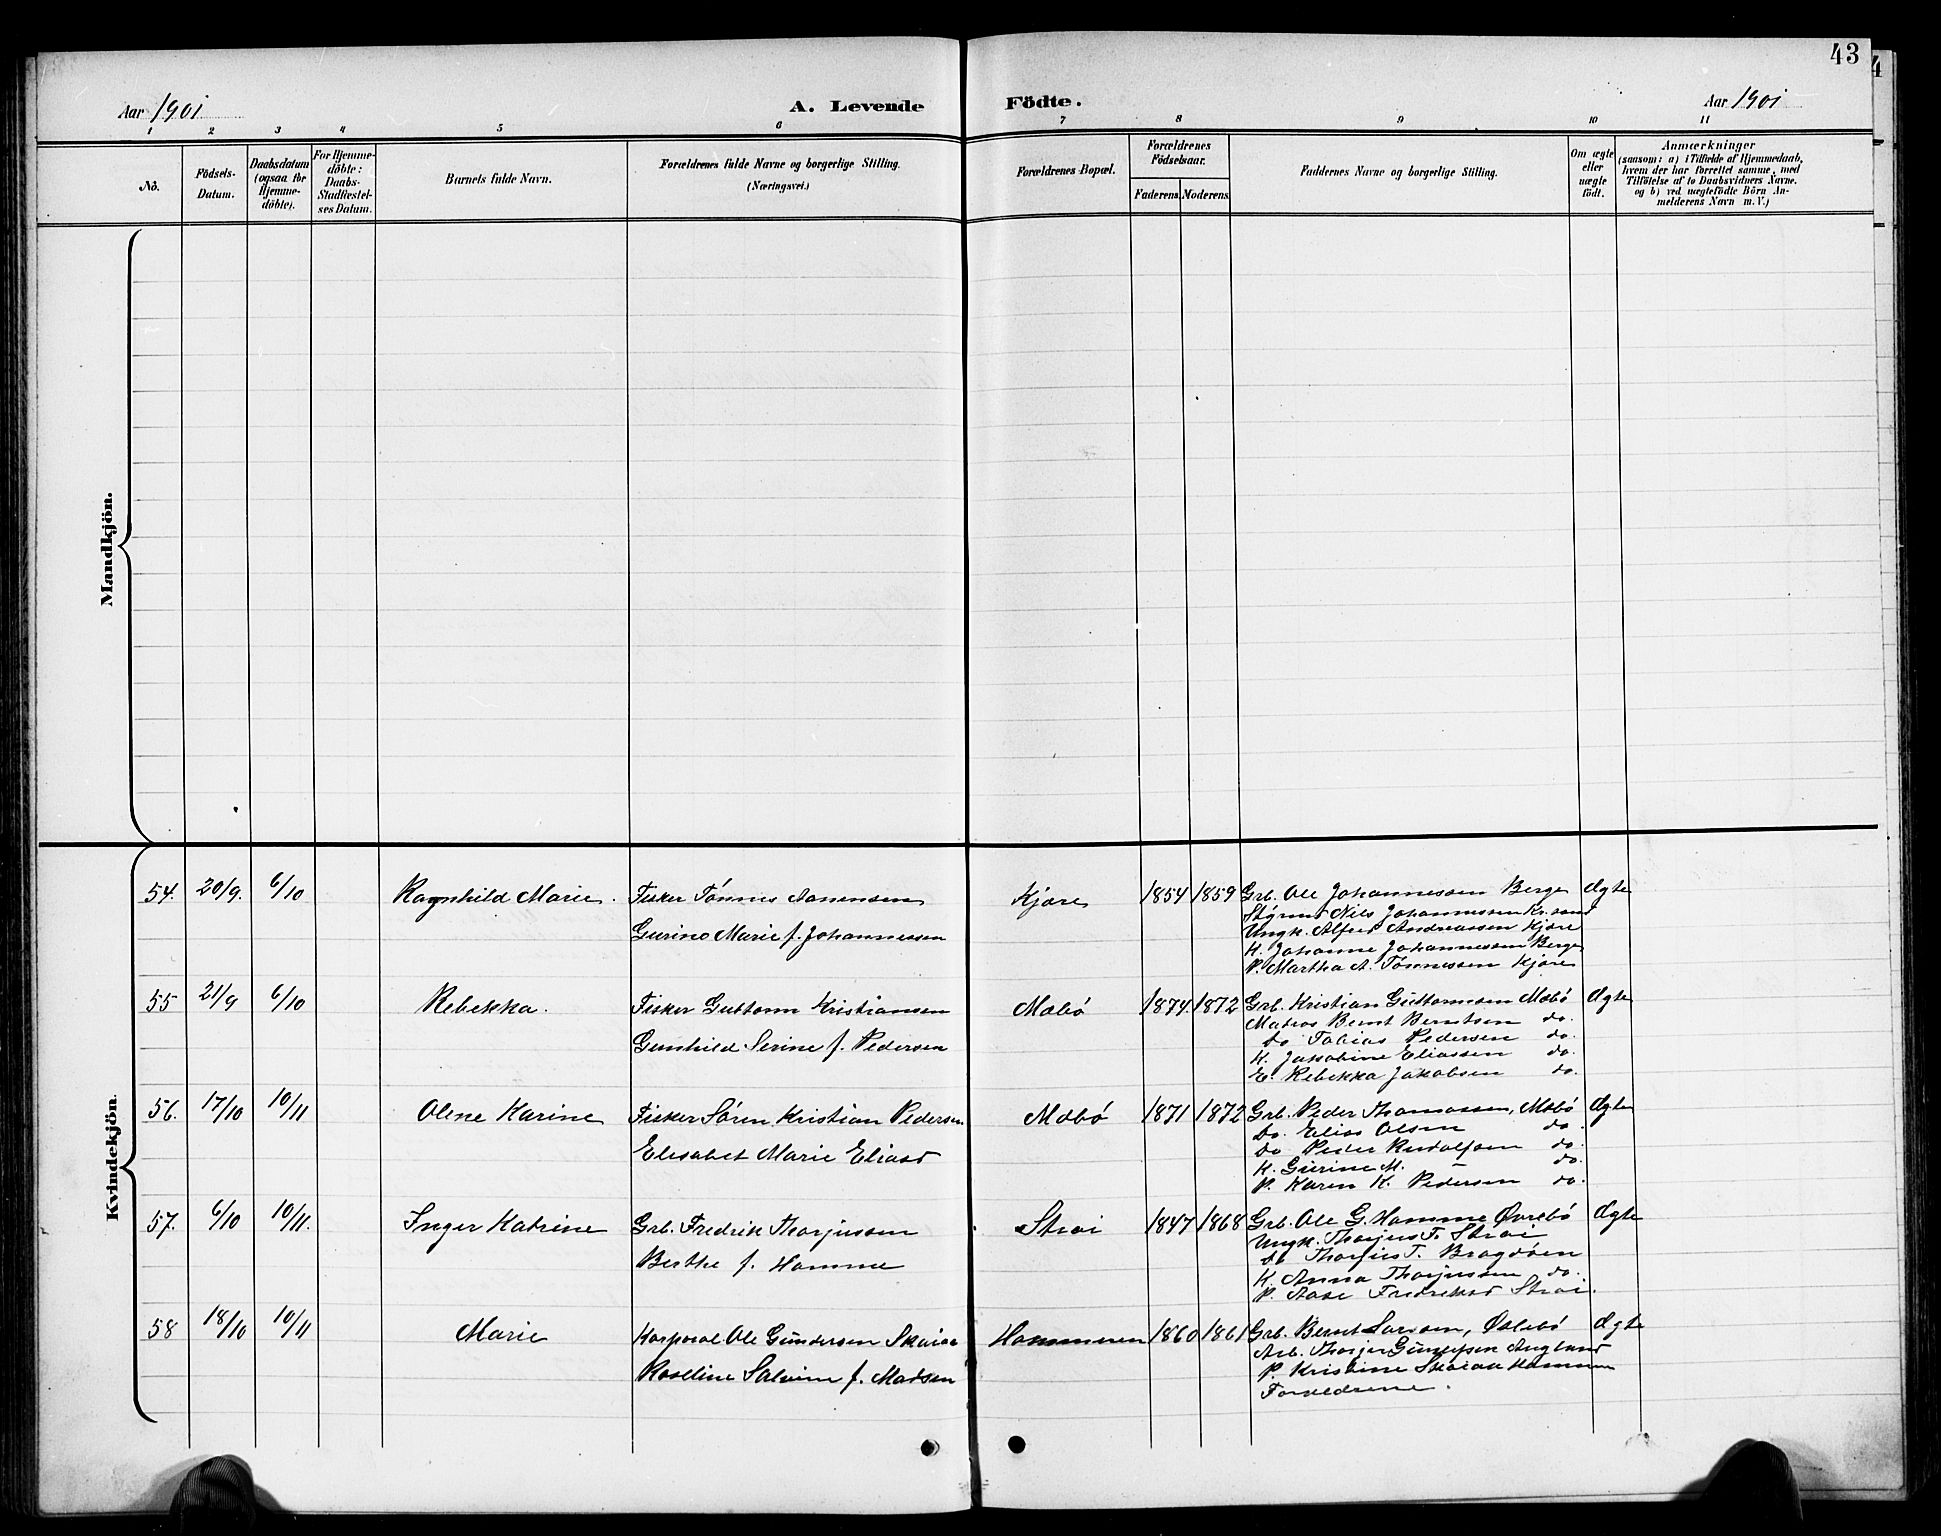 43
4
Aar 1901 A. Levende Födte. Aar 1901
1 2 3 4 5 6 7 8 9 10 11
No.
Födsels-Datum.
Daabsdatum (ogsaa for Hjemmedöbte).
For Hjemmedöbte: Daabs-Stadfæstelses Datum.
Barnets fulde Navn.
Forældrenes fulde Navne og borgerlige Stilling.
(Næringsvei.)
Forældrenes Bopæl.
Forældrenes Födselsaar.
Faderens. Moderens.
Faddernes Navne og borgerlige Stilling.
Om ægte eller uægte födt.
Anmærkninger
(saasom: a) i Tilfælde af Hjemmedaab,
hvem der har forrettet samme, med
Tilföielse af to Daabsvidners Navne.
og b) ved uægtefödte Börn An-
melderens Navn m. V.)
Mandkjön.
Kvindekjön.
54. 20/9. 6/10 Ragnhild Marie. Fisker Tönnes Aanensen Kjære 1854 1859 Grb. Ole Johannessen Berge Ægte
Nils Johannessen Kr.sand
Ungk. Alfred Andreassen Kjære
Gurine Marie f. Johannessen
K. Johanne Johannessen Berge
P. Martha A. Tönnessen Kjære
55 21/9 6/10 Rebekka. Fisker Guttorm Kristiansen Mæbö 1874. 1872 Grb. Kristian Guttormsen Mæbö Ægte
Matros Bernt Berntsen do.
Do Tobias Pedersen do.
Gunhild Serine f. Pedersen
K. Jakobine Eliassen do.
E. Rebekka Jakobsen do.
56. 17/10 10/11 Olene Karine Fisker Sören Kristian Pedersen Mæbö 1871 1872 Grb. Peder Thomassen, Mæbö Ægte
Do. Elias Olsen do.
Do Peder Rudolfsen do.
Elisabet Marie Eliasd
K. Gurine M. do.
P. Karen K. Pedersen do.
57. 6/10 10/11. Inger Katrine Grb. Fredrik Thorjussen Strai 1847 1868 Grb. Ole G. Homme Övrebö Ægte
Ungk. Thorjus F. Strai
Do Thorjus T. Bragdöen
Berthe f. Homme
K. Anna Thorjussen do.
P. Aase Fredriksd Strai.
58 18/10 10/11 Marie Korporal Ole Gundersen Skaiaa Hommeren 1860 1861 Grb. Bernt Larsen, Öslebö Ægte
Arb. Augland
Salvine f. Madsen
P. Kristine Skaiaa
Forældrene.